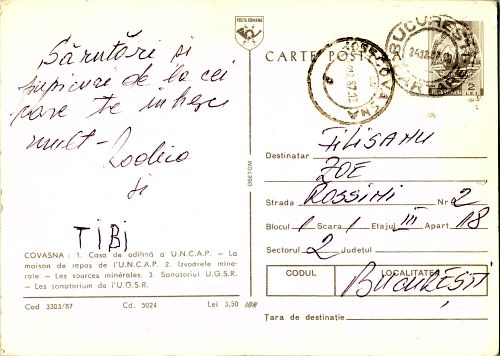 Sărutări și
pupicuri de la cei
care te iubesc
mult-
Rodica
și
TIBI
COVASNA : 1. Casa de odihnă a U.N.C.A.P. — La
maison de repos de l'U.N.C.A.P. 2. Izvoarele mine-
rale — Les sources minérales. 3. Sanatoriul U.G.S.R.
— Les sanatorium de l'U.G.S.R.
Cod 3303/87 Cd. 5024 Lei 3,50
OBETOM
POSTA ROMANA
CARTE POȘTALĂ
BUCUREȘTI
COVASNA
Destinatar FILISANU
ZOE
Strada ROSSINI Nr 2
Blocul 1 Scara 1 Etajul III Apart 18
Sectorul 2 Județul
CODUL LOCALITATEA
BUCUREȘTI
Țara de destinație